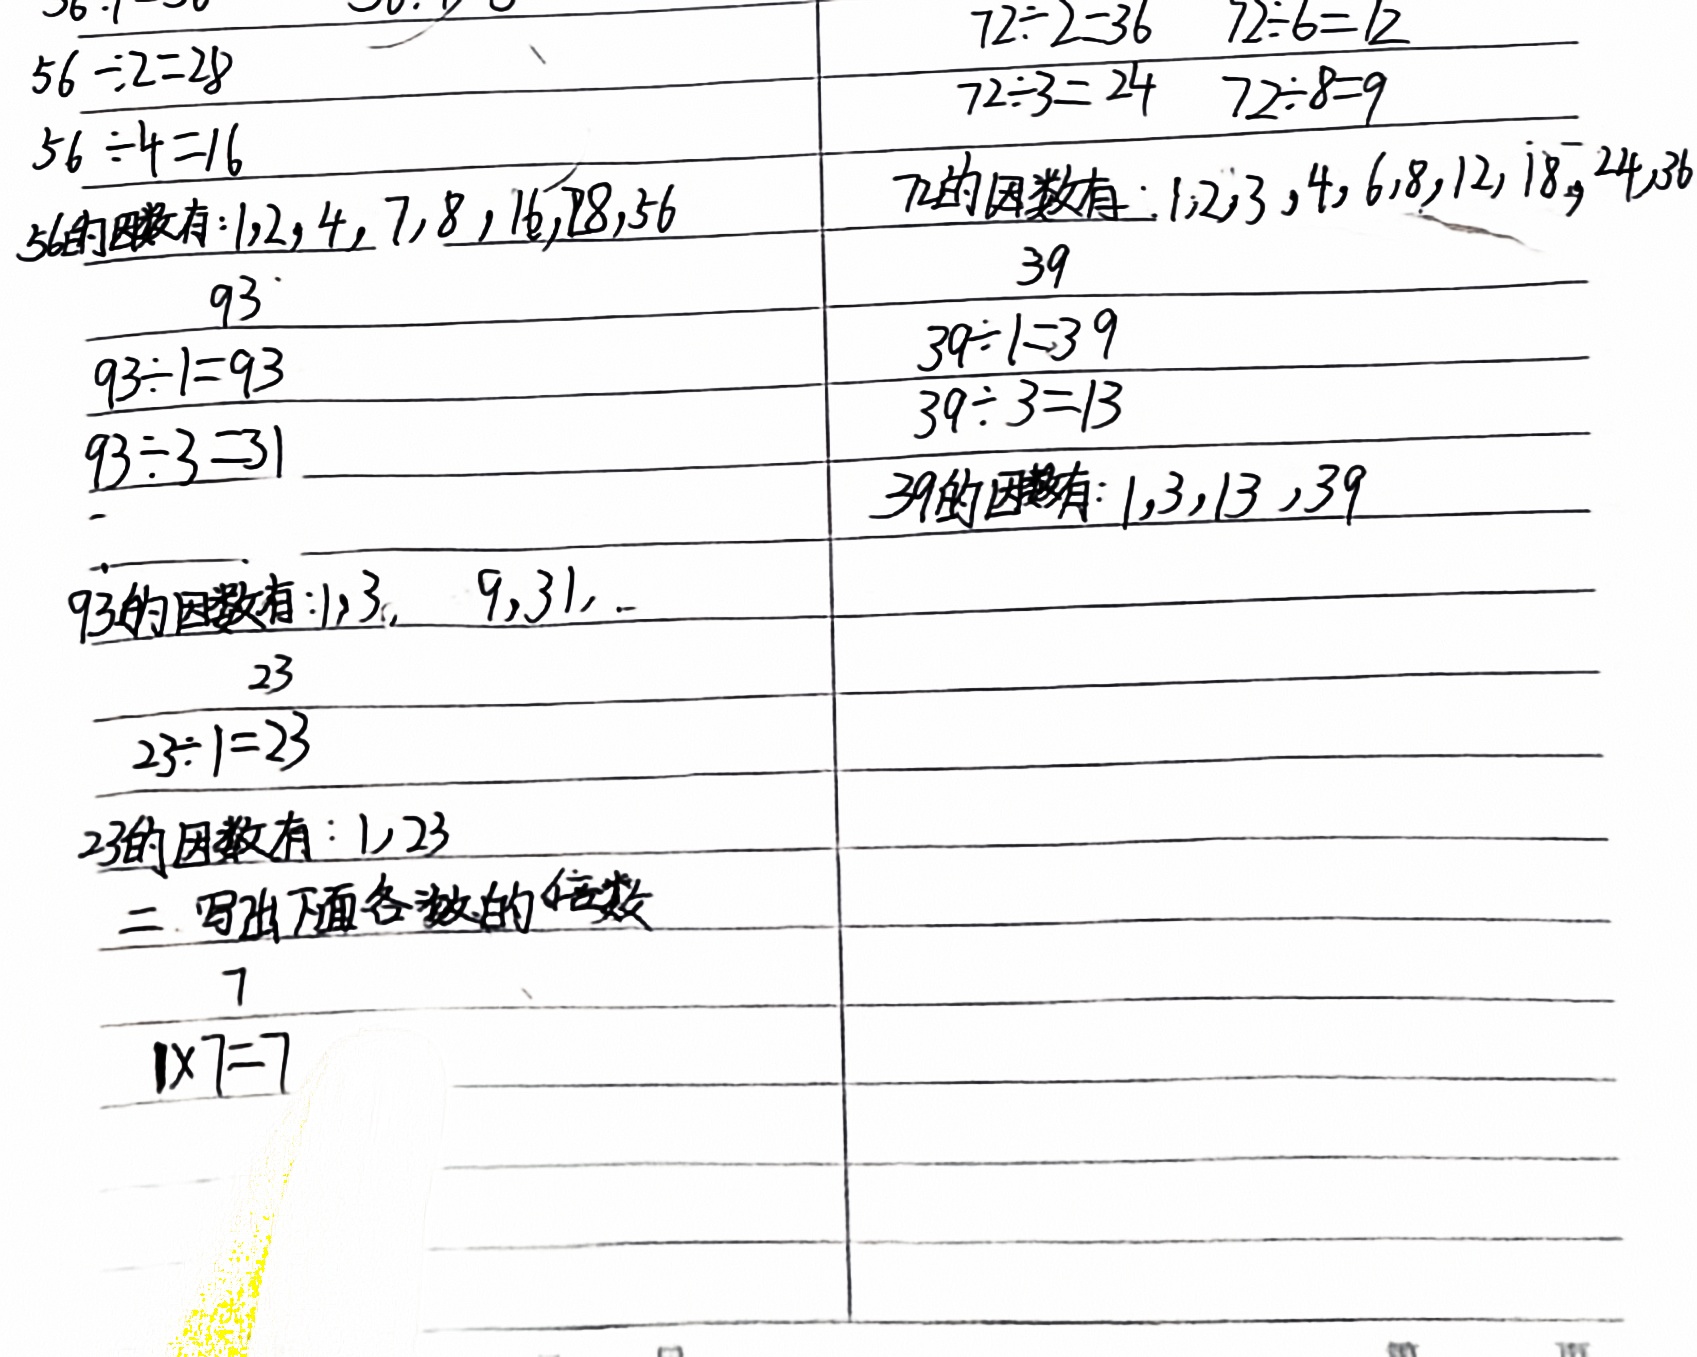 56÷2=28
56÷4=16
56的因数有:1,2,4,7,8,16,28,56
93
93÷1=93
93÷3=31
93的因数有:1,3, 9,31,
23
23÷1=23
23的因数有:1,23
二.写出下面各数的倍数
7
1×7=7
72÷2=36 72÷6=12
72÷3=24 72÷8=9
72的因数有:1,2,3,4,6,8,12,18,24,36
39
39÷1=39
39÷3=13
39的因数有:1,3,13,39